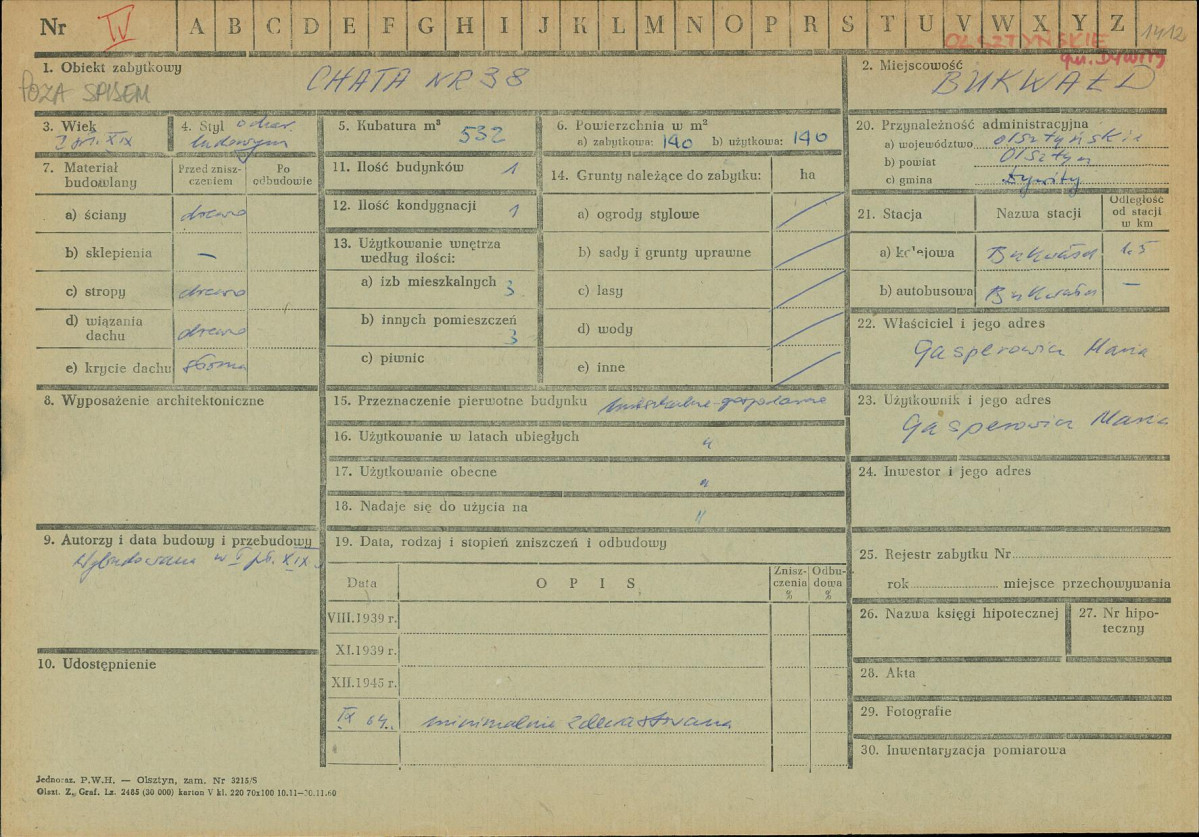 Nr IV A B C D E F G H I J K L M N O P R S T U V W X Y Z 1412
OLSZTYŃSKIE
gm. Dywity
1. Obiekt zabytkowy
CHATA NR 38
POZA SPISEM
2. Miejscowość
BUKWAŁD
3. Wiek
I poł. XIX
4. Styl
ludowym
5. Kubatura m³ 532
6. Powierzchnia w m²
a) zabytkowa: 140 b) użytkowa: 140
20. Przynależność administracyjna
a) województwo olsztyńskie
b) powiat Olsztyn
c) gmina Dywity
7. Materiał budowlany
Przed zniszczeniem
Po odbudowie
a) ściany drewno
b) sklepienia —
c) stropy drewno
d) wiązania dachu drewno
e) krycie dachu słoma
11. Ilość budynków 1
12. Ilość kondygnacji 1
13. Użytkowanie wnętrza
według ilości:
a) izb mieszkalnych 3
b) innych pomieszczeń 3
c) piwnic
14. Grunty należące do zabytku: ha
a) ogrody stylowe
b) sady i grunty uprawne
c) lasy
d) wody
e) inne
21. Stacja
Nazwa stacji
Odległość
od stacji
w km
a) kolejowa Bukwałd 1.5
b) autobusowa Bukwałd —
22. Właściciel i jego adres
Gasperowicz Maria
8. Wyposażenie architektoniczne
15. Przeznaczenie pierwotne budynku mieszkalno-gospodarcze
16. Użytkowanie w latach ubiegłych "
17. Użytkowanie obecne "
18. Nadaje się do użycia na "
23. Użytkownik i jego adres
Gasperowicz Maria
24. Inwestor i jego adres
9. Autorzy i data budowy i przebudowy
Wybudowana w I poł. XIX
10. Udostępnienie
19. Data, rodzaj i stopień zniszczeń i odbudowy
Data
O P I S
Znisz-
czenia
%
Odbu-
dowa
%
VIII.1939 r.
XI.1939 r.
XII.1945 r.
IX 64. minimalnie zdewastowana
25. Rejestr zabytku Nr
rok miejsce przechowywania
26. Nazwa księgi hipotecznej
27. Nr hipo-
teczny
28. Akta
29. Fotografie
30. Inwentaryzacja pomiarowa
Jednoraz. P.W.H. — Olsztyn, zam. Nr 3215/S
Olszt. Z. Graf. Lz. 2465 (30 000) karton V kl. 220 70x100 10.11—30.11.60